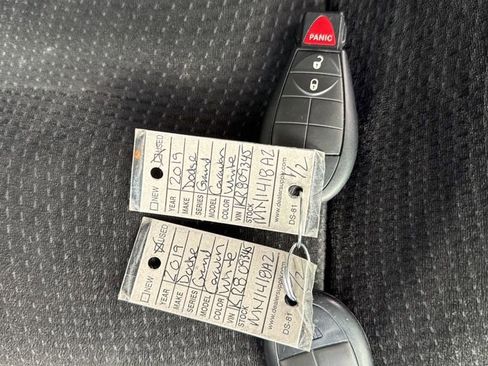 PANIC
☐ NEW ☒ USED
YEAR 2019
MAKE Dodge
SERIES Grand
MODEL Caravan
COLOR White
VIN KR809345
STOCK MN1418A2
www.dealersupply.com
DS-61
1/2
☐ NEW ☒ USED
YEAR 2019
MAKE Dodge
SERIES Grand
MODEL Caravan
COLOR White
VIN KR809345
STOCK MN1418A2
DS-61
1/2